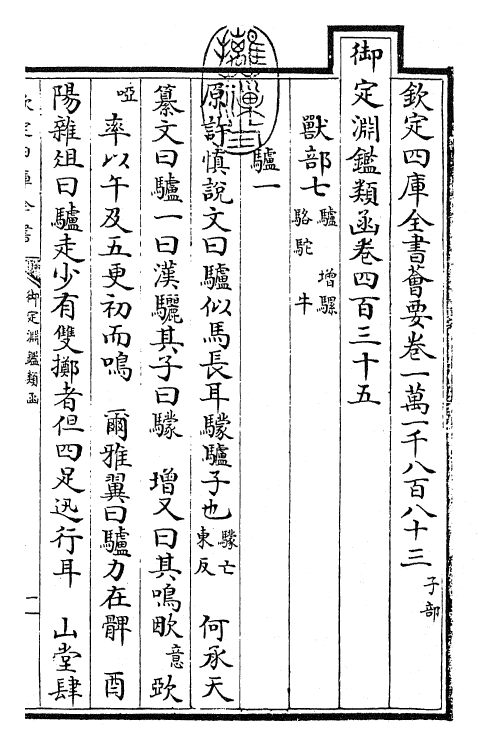 欽定四庫全書薈要卷一萬一千八百八十三 子部
御定淵鑑類函卷四百三十五
獸部七 驢 增騾 駱駝 牛
驢一
原許慎說文曰驢似馬長耳驡驢子也 驡亡東反 何承天
纂文曰驢一曰漢驪其子曰驡 增又曰其鳴㰦意㰳
啞率以午及五更初而鳴 爾雅翼曰驢力在髀 酉
陽雜俎曰驢走少有雙擲者但四足迅行耳 山堂肆
御定淵鑑類函
一